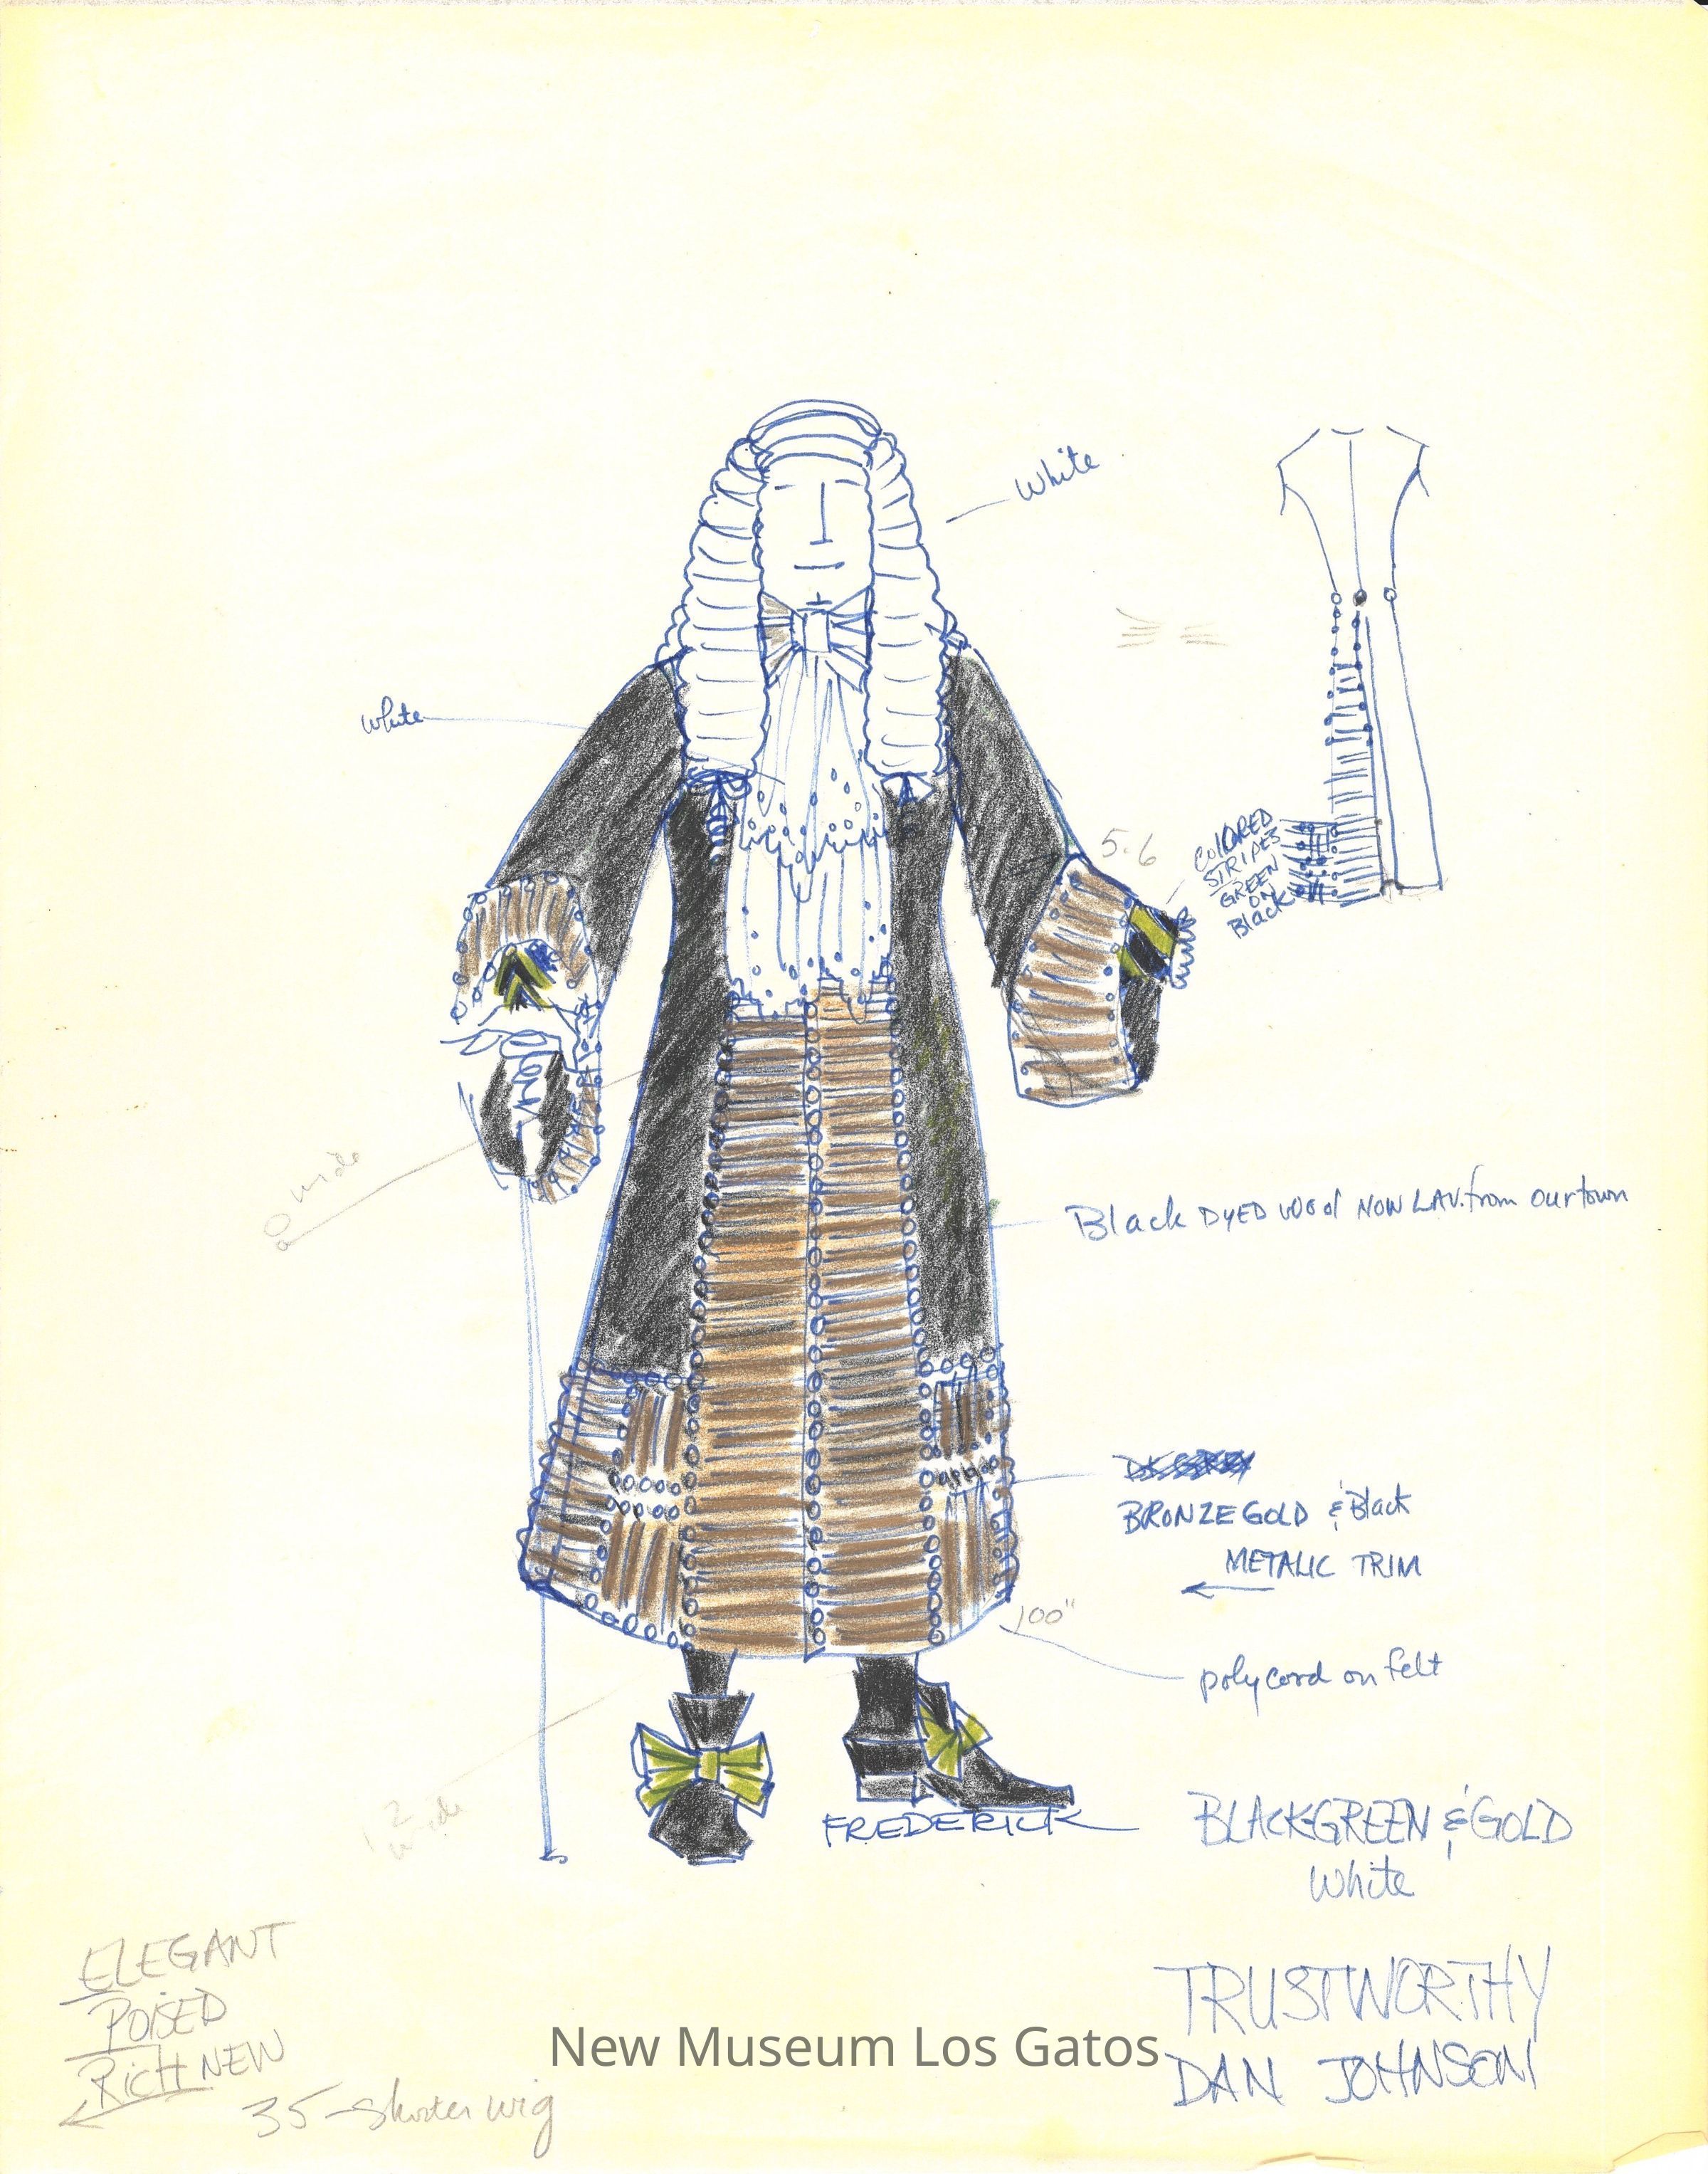 White
White
5.6
COLORED
STRIPES
GREEN
ON
Black
wide
Black DYED wool NOW LAV. from Our town
BRONZE GOLD & Black
METALIC TRIM
100"
poly cord on felt
12
wide
FREDERICK
BLACKGREEN & GOLD
White
ELEGANT
POISED
RICH NEW
35 - Shorter wig
TRUSTWORTHY
DAN JOHNSON
New Museum Los Gatos